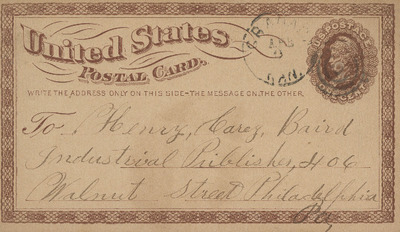 United States
POSTAL CARD.
WRITE THE ADDRESS ONLY ON THIS SIDE-THE MESSAGE ON THE OTHER.
U.S. POSTAGE
ONE CENT
To. Henry, Carey, Baird
Industrial Publisher, 406
Walnut Street Philadelphia
Pa